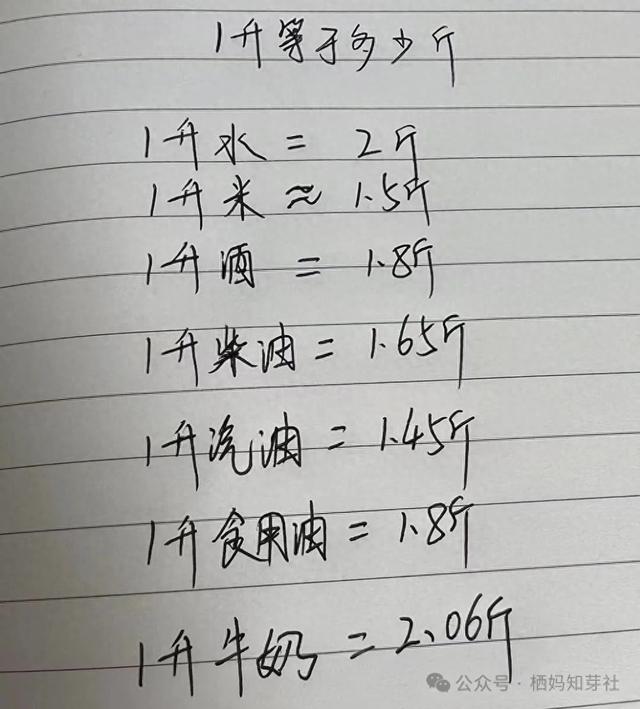 1升等于多少斤
1升水 = 2斤
1升米 ≈ 1.5斤
1升酒 = 1.8斤
1升柴油 = 1.65斤
1升汽油 = 1.45斤
1升食用油 = 1.8斤
1升牛奶 = 2.06斤
公众号 · 栖妈知芽社